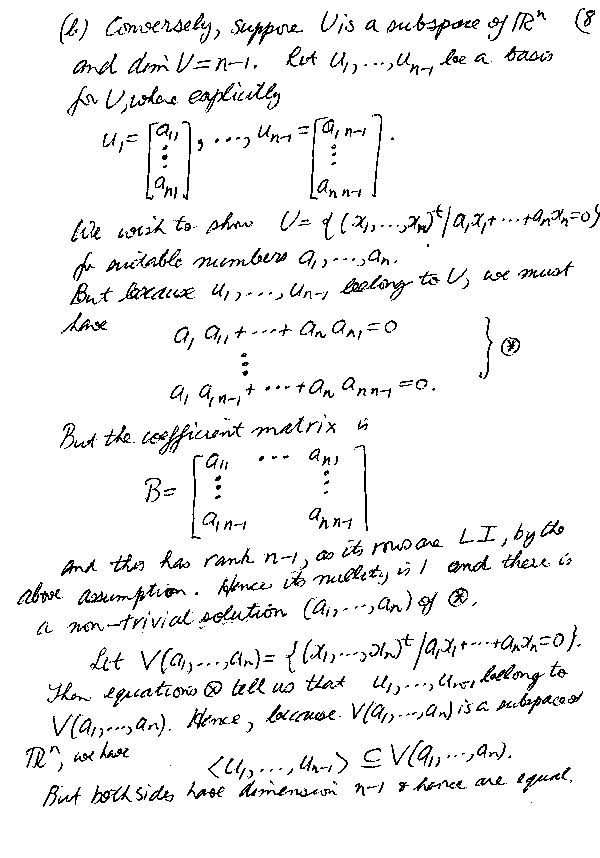 (b) Conversely, suppose U is a subspace of ℝⁿ (8
and dim U = n-1. Let u₁, ..., uₙ₋₁ be a basis
for U, where explicitly
u₁ = [a₁₁ ⋮ aₙ₁], ..., uₙ₋₁ = [a₁ ₙ₋₁ ⋮ aₙ ₙ₋₁].
We wish to show U = {(x₁, ..., xₙ)ᵗ | a₁x₁ + ... + aₙxₙ = 0}
for suitable numbers a₁, ..., aₙ.
But because u₁, ..., uₙ₋₁ belong to U, we must
have
a₁ a₁₁ + ... + aₙ aₙ₁ = 0
⋮ } ⊛
a₁ a₁ ₙ₋₁ + ... + aₙ aₙ ₙ₋₁ = 0.
But the coefficient matrix is
B = [a₁₁ ... aₙ₁ ⋮ ⋮ a₁ ₙ₋₁ aₙ ₙ₋₁]
and this has rank n-1, as its rows are LI, by the
above assumption. Hence its nullity is 1 and there is
a non-trivial solution (a₁, ..., aₙ) of ⊛.
Let V(a₁, ..., aₙ) = {(x₁, ..., xₙ)ᵗ | a₁x₁ + ... + aₙxₙ = 0}.
Then equations ⊛ tell us that u₁, ..., uₙ₋₁ belong to
V(a₁, ..., aₙ). Hence, because V(a₁, ..., aₙ) is a subspace of
ℝⁿ, we have
⟨u₁, ..., uₙ₋₁⟩ ⊆ V(a₁, ..., aₙ).
But both sides have dimension n-1 & hence are equal.